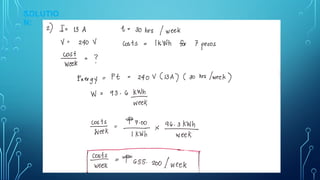 SOLUTIO
N:
2) I = 13 A t = 30 hrs / week
V = 240 V costs = 1 kWh for 7 pesos
cost/week = ?
Energy = Pt = 240 V (13A) ( 30 hrs /week )
W = 93.6 kWh/week
costs/week = ₱7.00/1 kWh x 96.3 kWh/week
costs/week = ₱ 655.200 / week